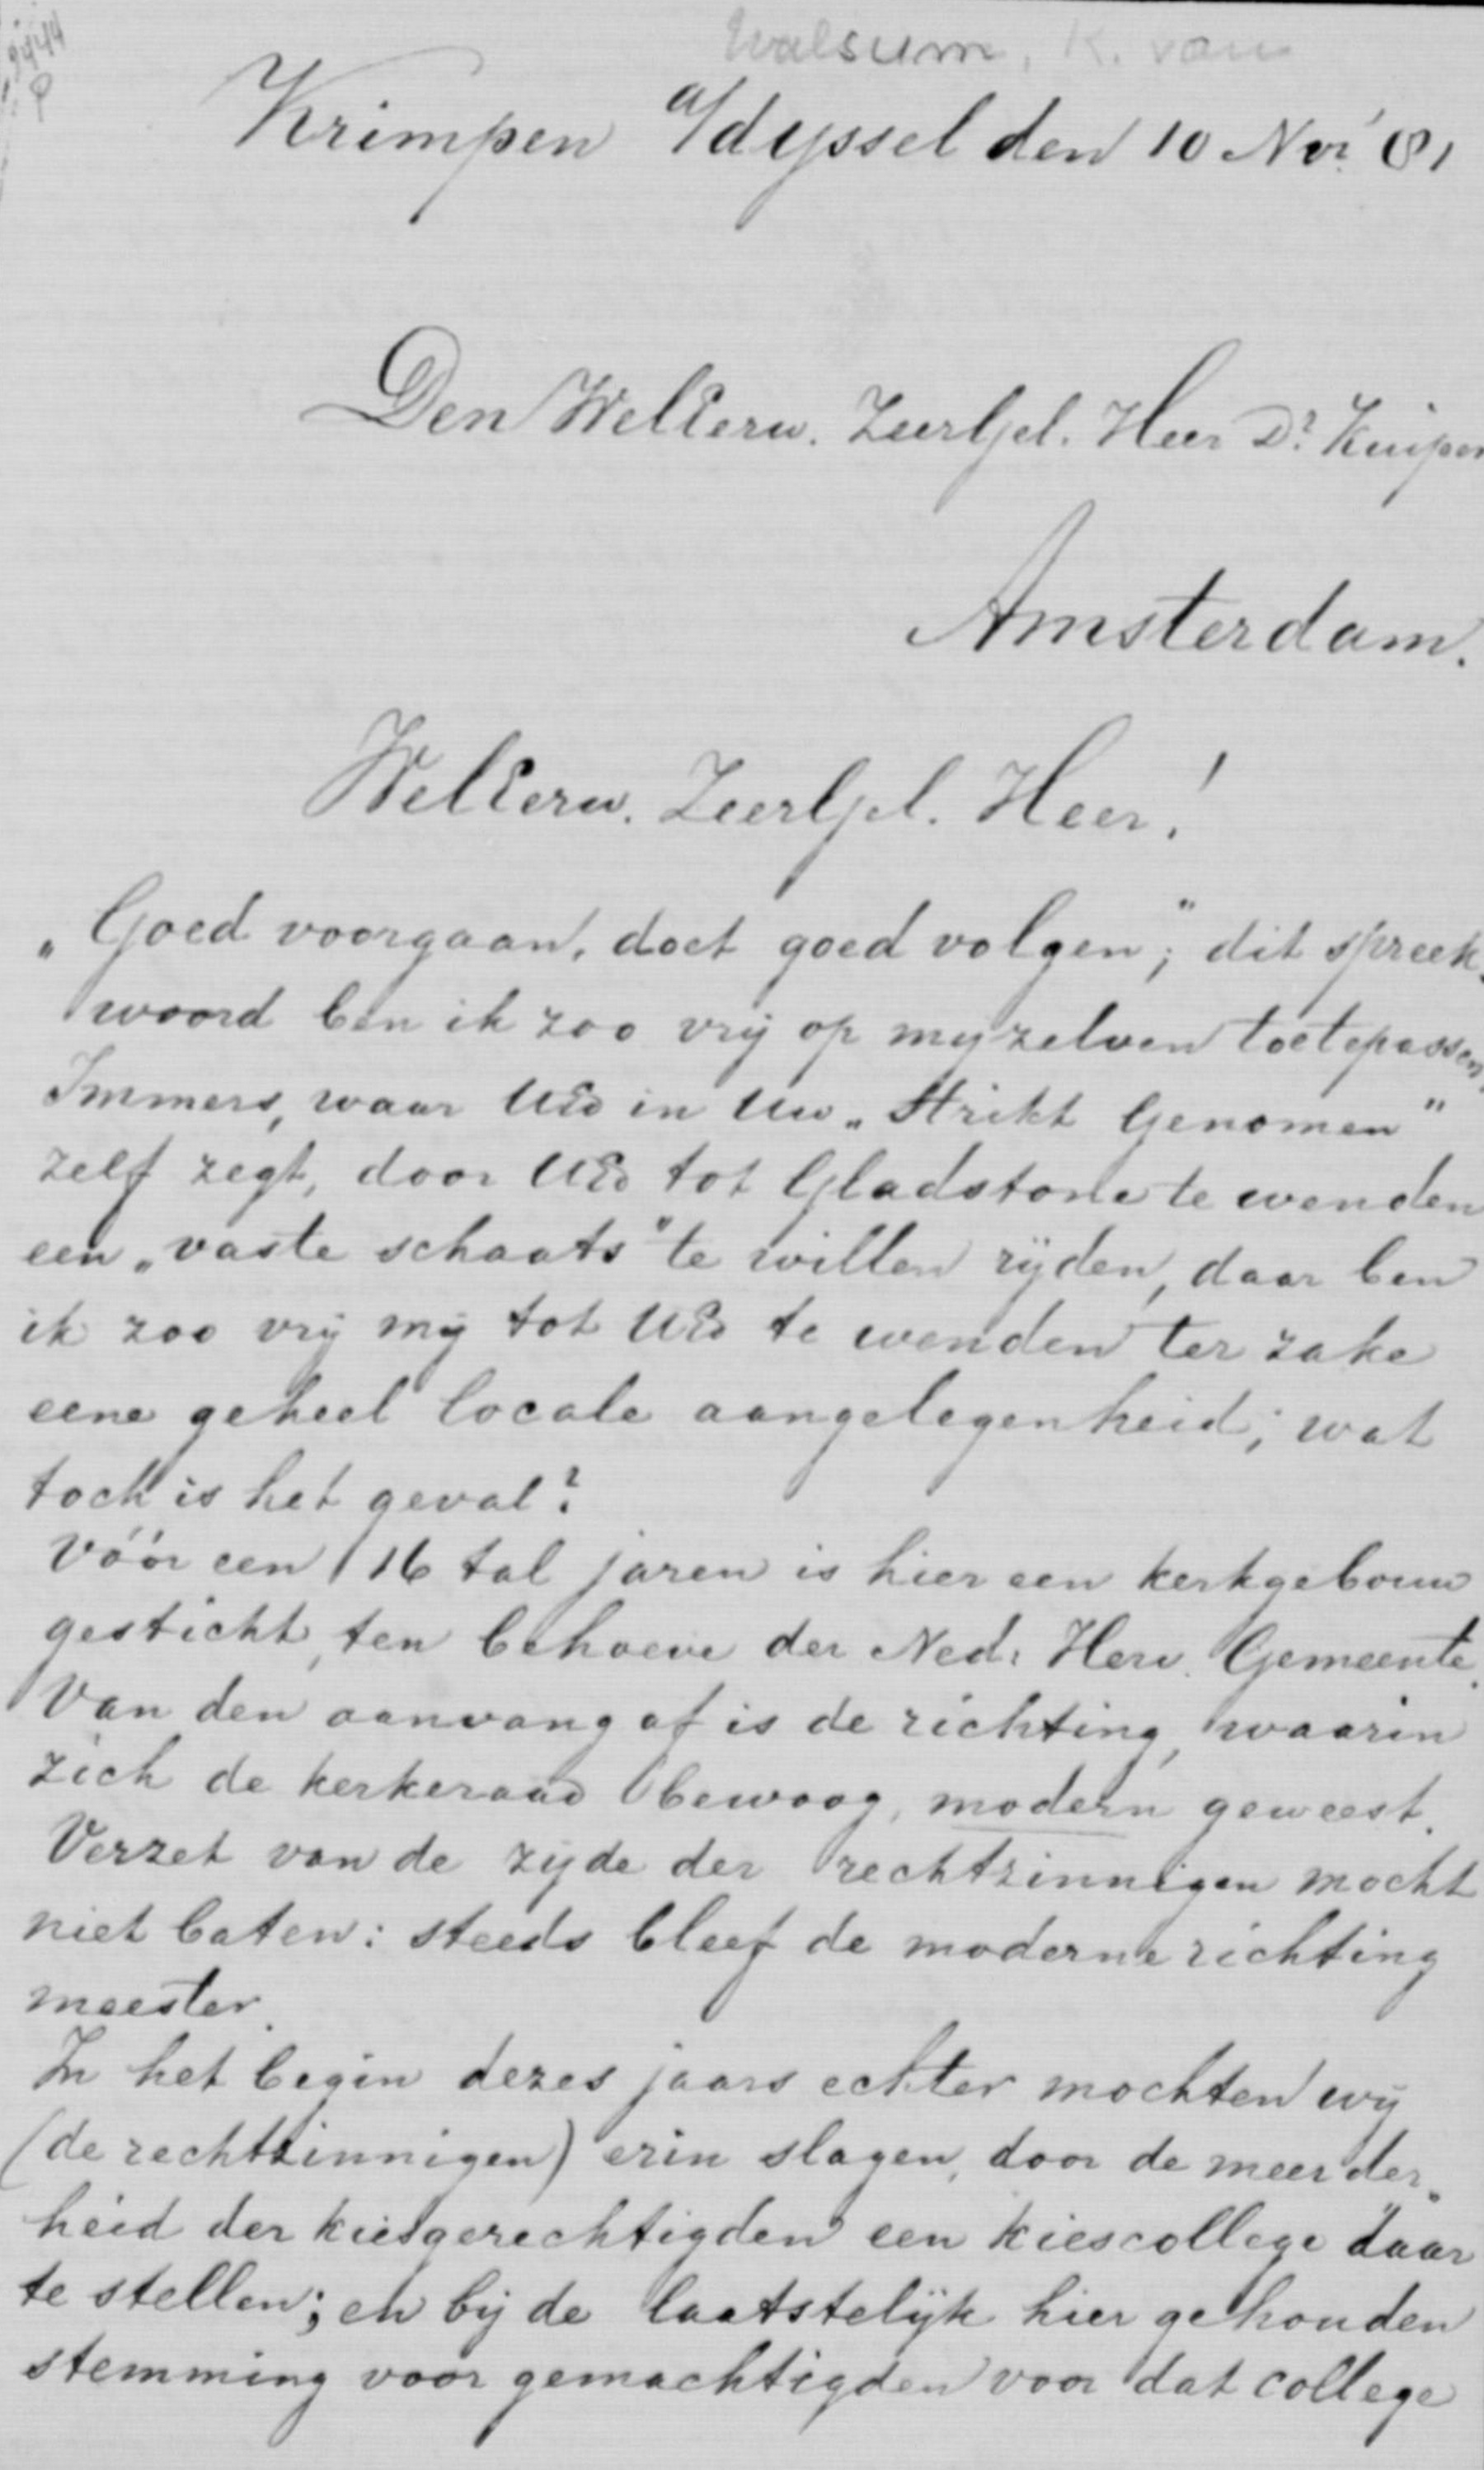 Walsum, K. van
Krimpen a/d yssel den 10 Nov. '81
Den WelEerw. Zeergel. Heer Dr Kuiper
Amsterdam.
WelEerw. Zeergel. Heer!
„Goed voorgaan, doet goed volgen;" dit spreek-
woord ben ik zoo vrij op myzelven toetepassen
Immers, waar UEd in Uw „Strikt Genomen"
zelf zegt, door UEd tot Gladstone te wenden
een „vaste schaats" te willen rijden, daar ben
ik zoo vrij mij tot UEd te wenden ter zake
eene geheel locale aangelegenheid; wat
toch is het geval?
Vóór een 16 tal jaren is hier een kerkgebouw
gesticht, ten behoeve der Ned. Herv. Gemeente.
Van den aanvang af is de richting, waarin
zich de kerkeraad bewoog, modern geweest.
Verzet van de zijde der rechtzinnigen mocht
niet baten: steeds bleef de moderne richting
meester.
In het begin dezes jaars echter mochten wij
(de rechtzinnigen) erin slagen, door de meerder-
heid der kiesgerechtigden een kiescollege daar
te stellen; en bij de laatstelijk hier gehouden
stemming voor gemachtigden voor dat college